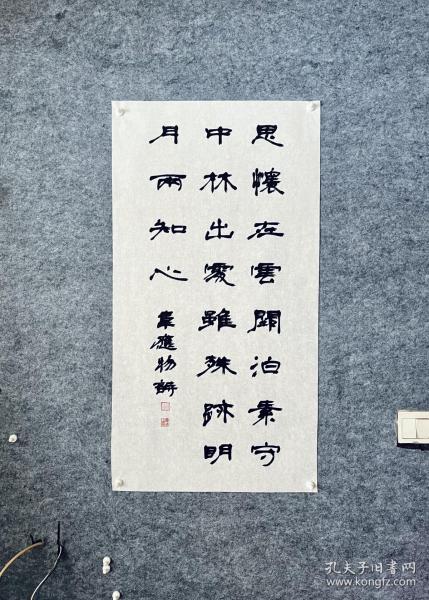 思懷在雲闕泊素守
中林出處雖殊跡明
月兩知心
韋應物詩
孔夫子旧书网
www.kongfz.com